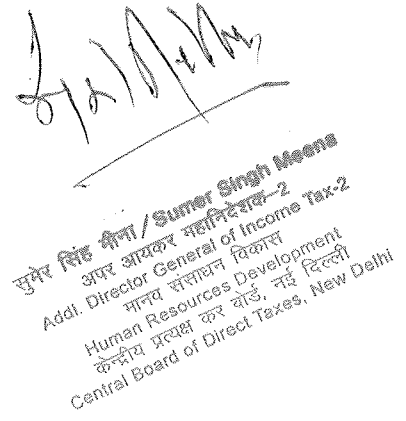 सुमेर सिंह मीना / Sumer Singh Meena
अपर आयकर महानिदेशक-2
Addl. Director General of Income Tax-2
मानव संसाधन विकास
Human Resources Development
केन्द्रीय प्रत्यक्ष कर बोर्ड, नई दिल्ली
Central Board of Direct Taxes, New Delhi